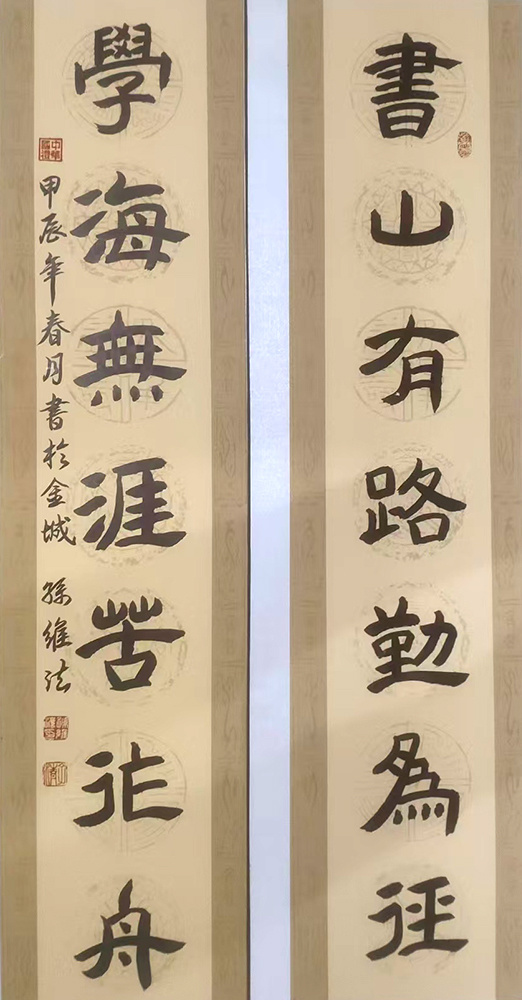 書山有路勤為徑
學海無涯苦作舟
甲辰年春月書於金城 孫維法